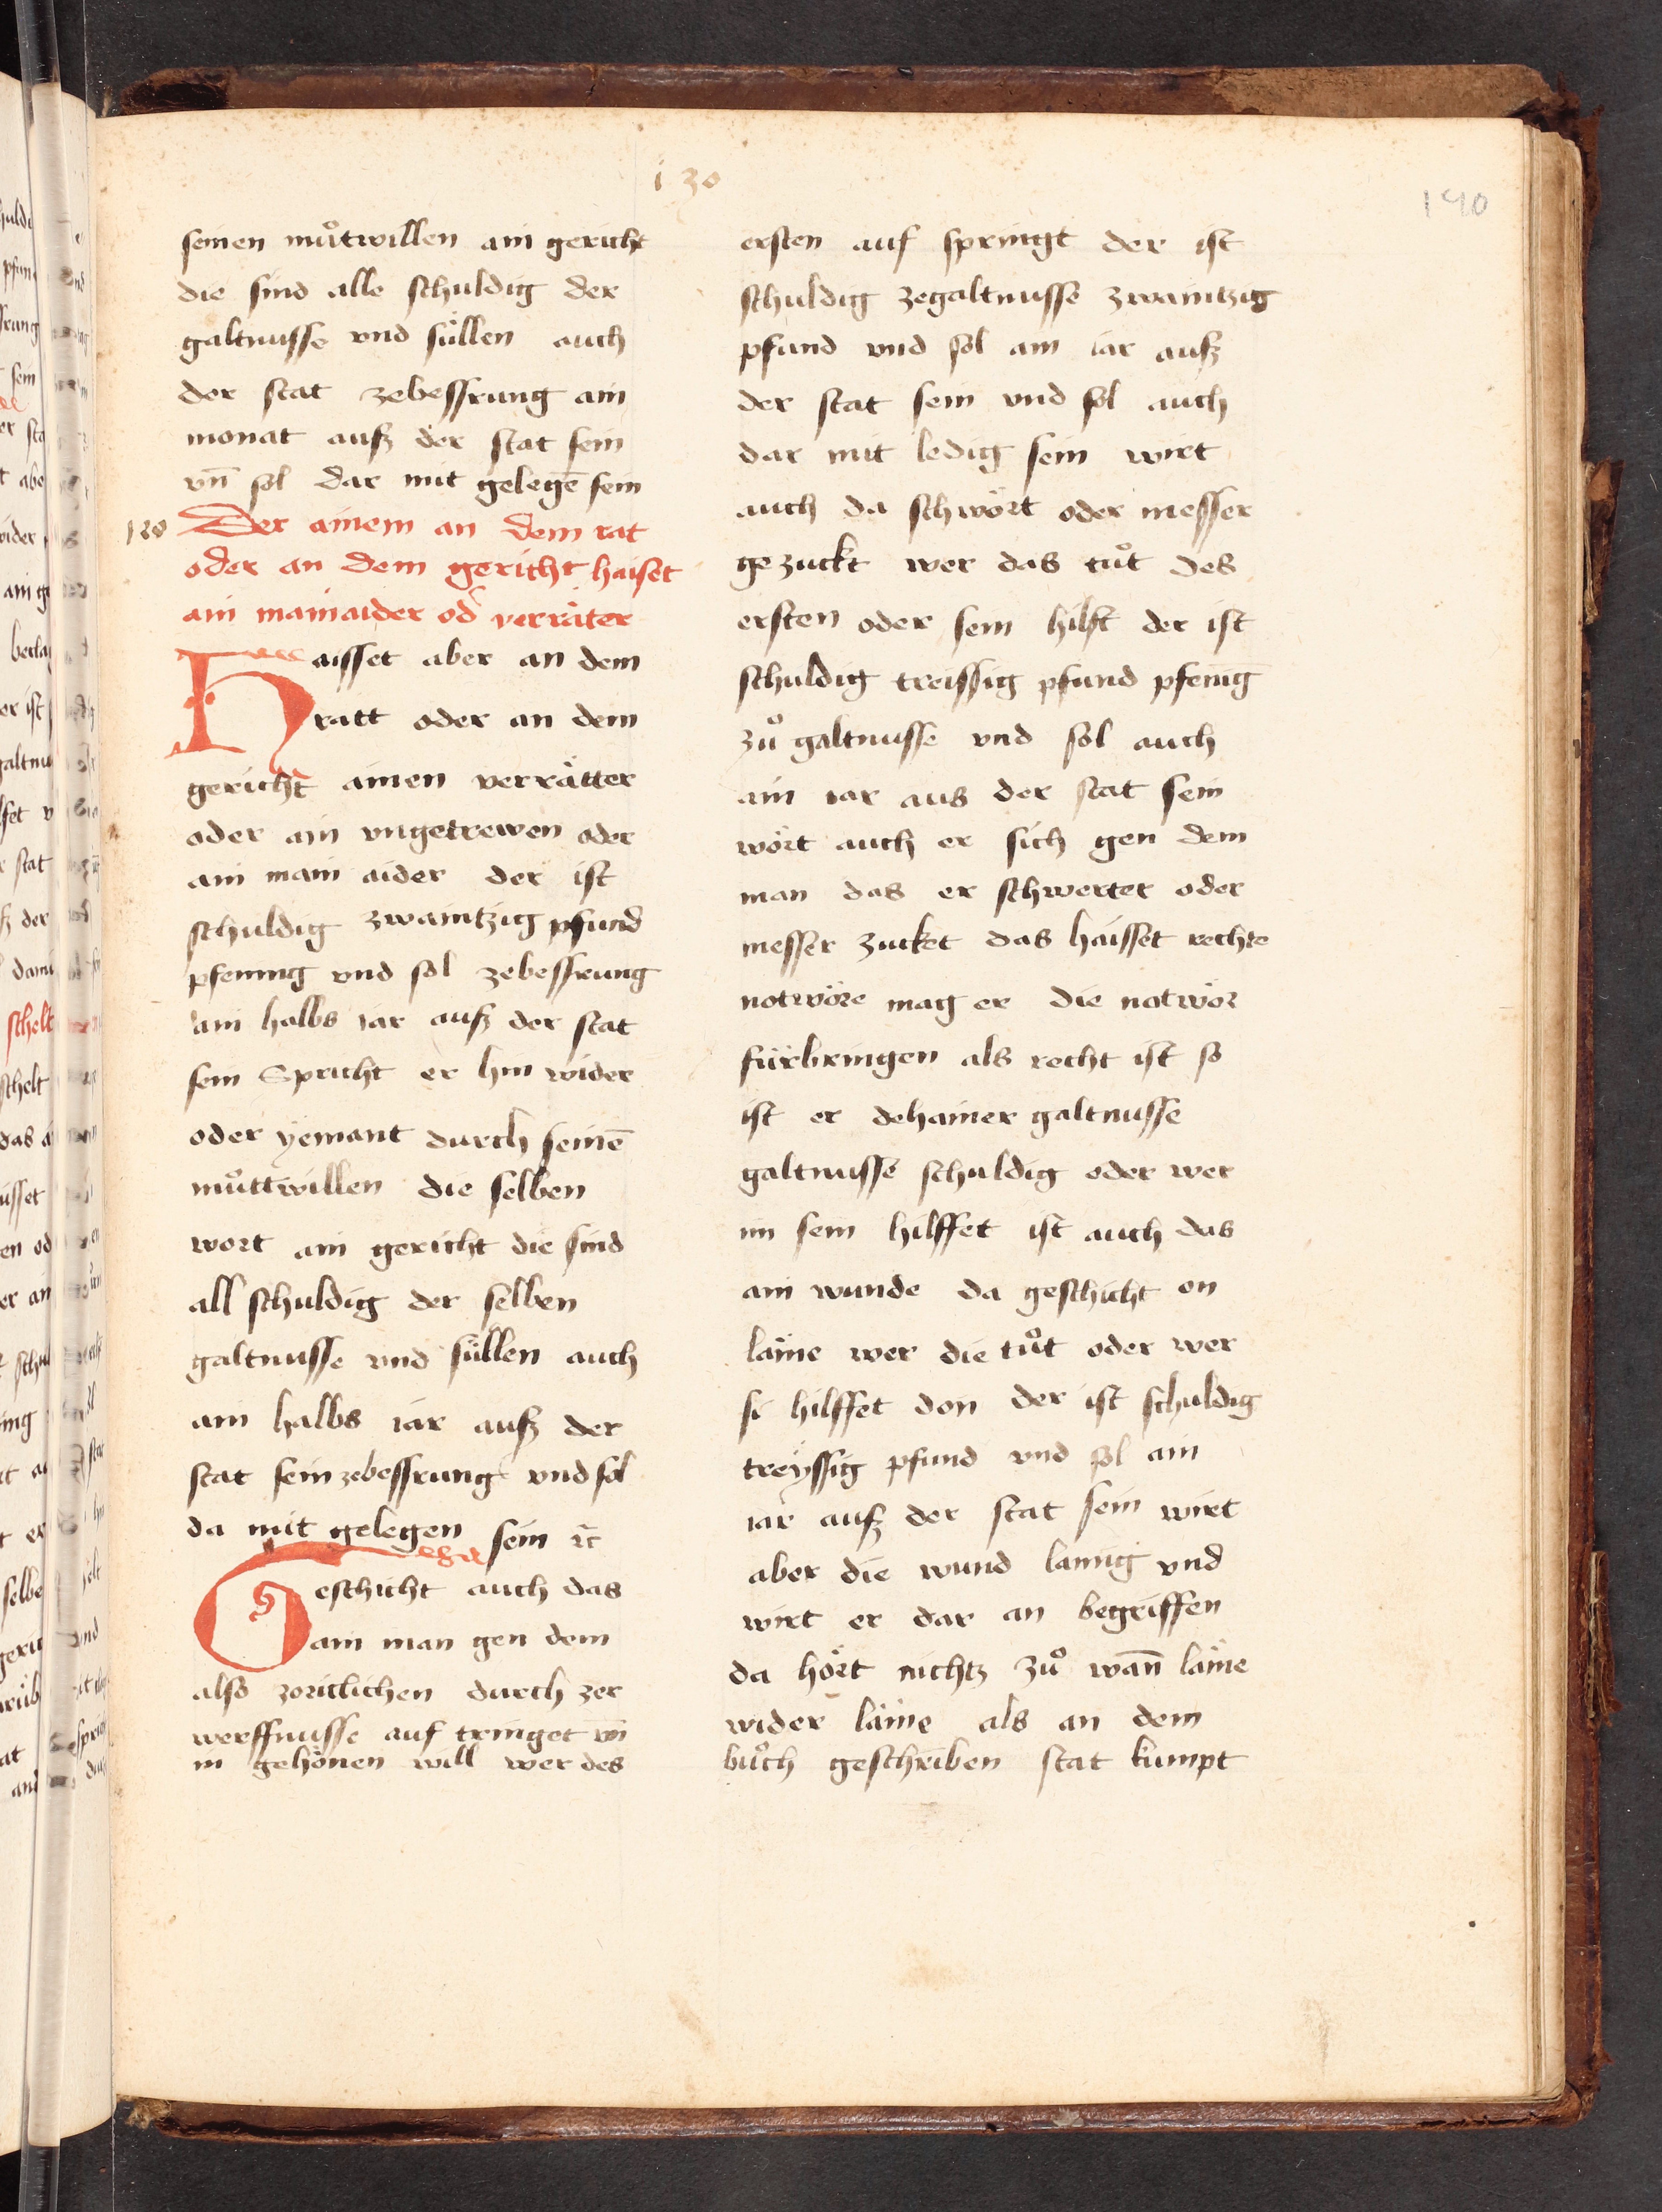 130
190
seinen muͦtwillen ain gericht
die sind alle schuldig der
galtnusse vnd süllen auch
der stat zebessrung ain
monat auſz der stat sein
vn̄ sol dar mit gelegē sein
Der ainem an dem rat
oder an dem gericht haiset
ain mainaider od verräter
Haisset aber an dem
ratt oder an dem
gericht ainen verrätter
oder ain vngetrewen oder
ain main aider der ist
schuldig zwaintzig pfund
pfening vnd sol zebessrung
ain halbs iar auſz der stat
sein Spricht er hin wider
oder yemant durch seinē
muͦttwillen die selben
wort ain gericht die sind
all schuldig der selben
galtnusse vnd süllen auch
ain halbs iar auſz der
stat sein zebessrung vnd sol
da mit gelegen sein
Geschicht auch das
ain man gen dem
also zoriclichen durch zer
werffnusse auf tringet vn̄
in gehönen will wer des
ersten auf springt der ist
schuldig zegaltnusse zwaintzig
pfund vnd sol ain iar auſz
der stat sein vnd sol auch
dar mit ledig sein wirt
auch da schwört oder messer
gezuckt wer das tuͦt des
ersten oder sein hilft der ist
schuldig treissig pfund pfenig
zuͦ galtnusse vnd sol auch
ain iar aus der stat sein
wört auch er sich gen dem
man das er schwerter oder
messer zucket das haisset rechte
notwöre mag er die notwör
fürbringen als recht ist so
ist er dehainer galtnusse
galtnusse schuldig oder wer
im sein hilffet ist auch das
ain wunde da geschicht on
läme wer die tuͦt oder wer
si hilffet don der ist schuldig
treyssig pfund vnd sol ain
iar auſz der stat sein wirt
aber die wund lamig vnd
wirt er dar an begriffen
da hört nichtz zuͦ wan̄ läme
wider läme als an dem
buͦch geschriben stat kumpt